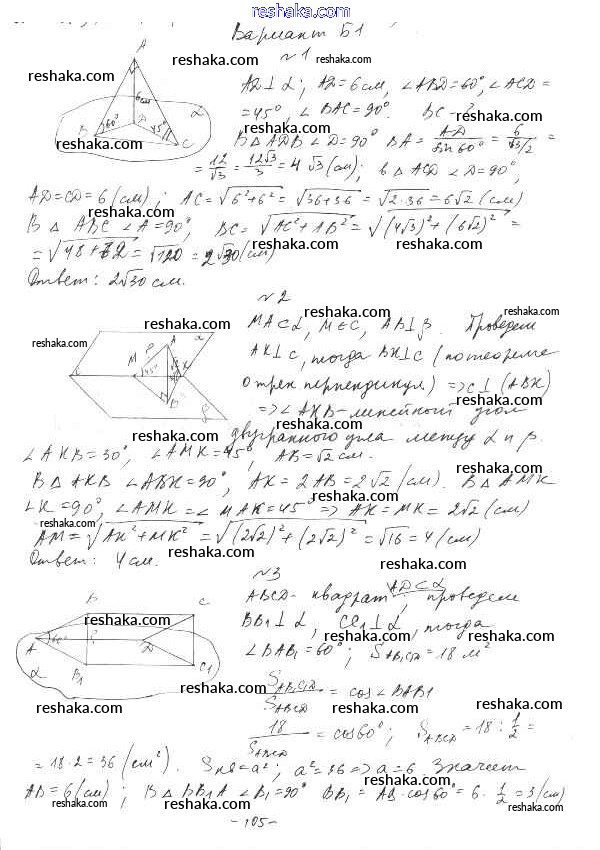 www.reshaka.com
Вариант Б1
№1
AD⊥α; AD=6см, ∠ABD=60°, ∠ACD=
=45°, ∠BAC=90°. BC-?
В △ADB ∠D=90° BA = AD/sin60° = 6/(√3/2) =
= 12/√3 = 12√3/3 = 4√3 (см); в △ACD ∠D=90°,
AD=CD=6(см); AC=√(6²+6²) = √(36+36) = √(2·36) = 6√2 (см)
В △ABC ∠A=90°, BC=√(AC²+AB²) = √((4√3)²+(6√2)²) =
= √(48+72) = √120 = 2√30 (см)
Ответ: 2√30 см.
№2
MA⊂α, M∈C, AB⊥β. Проведем
AK⊥c, тогда BK⊥c (по теореме
о трех перпендикул.) => c⊥(ABK)
=> ∠AKB-линейный угол
двугранного угла между α и β.
∠AKB=30°, ∠AMK=45°, AB=√2 см.
В △AKB ∠ABK=90°, AK=2AB=2√2 (см). В △AMK
∠K=90°, ∠AMK=∠MAK=45° => AK=MK=2√2 (см)
AM=√(AK²+MK²) = √((2√2)²+(2√2)²) = √16 = 4 (см)
Ответ: 4 см.
№3
ABCD-квадрат, AD⊂α, проведем
BB₁⊥α, CC₁⊥α, тогда
∠BAB₁=60°; S_AB₁C₁D=18 м²
S_AB₁C₁D/S_ABCD = cos∠BAB₁
18/S_ABCD = cos60°; S_ABCD=18:1/2=
=18·2=36 (см²). Sкв=a²; a²=36=>a=6 Значит
AB=6(см); В △BB₁A ∠B₁=90° BB₁=AB·cos60°=6·1/2=3(см)
-105-
reshaka.com